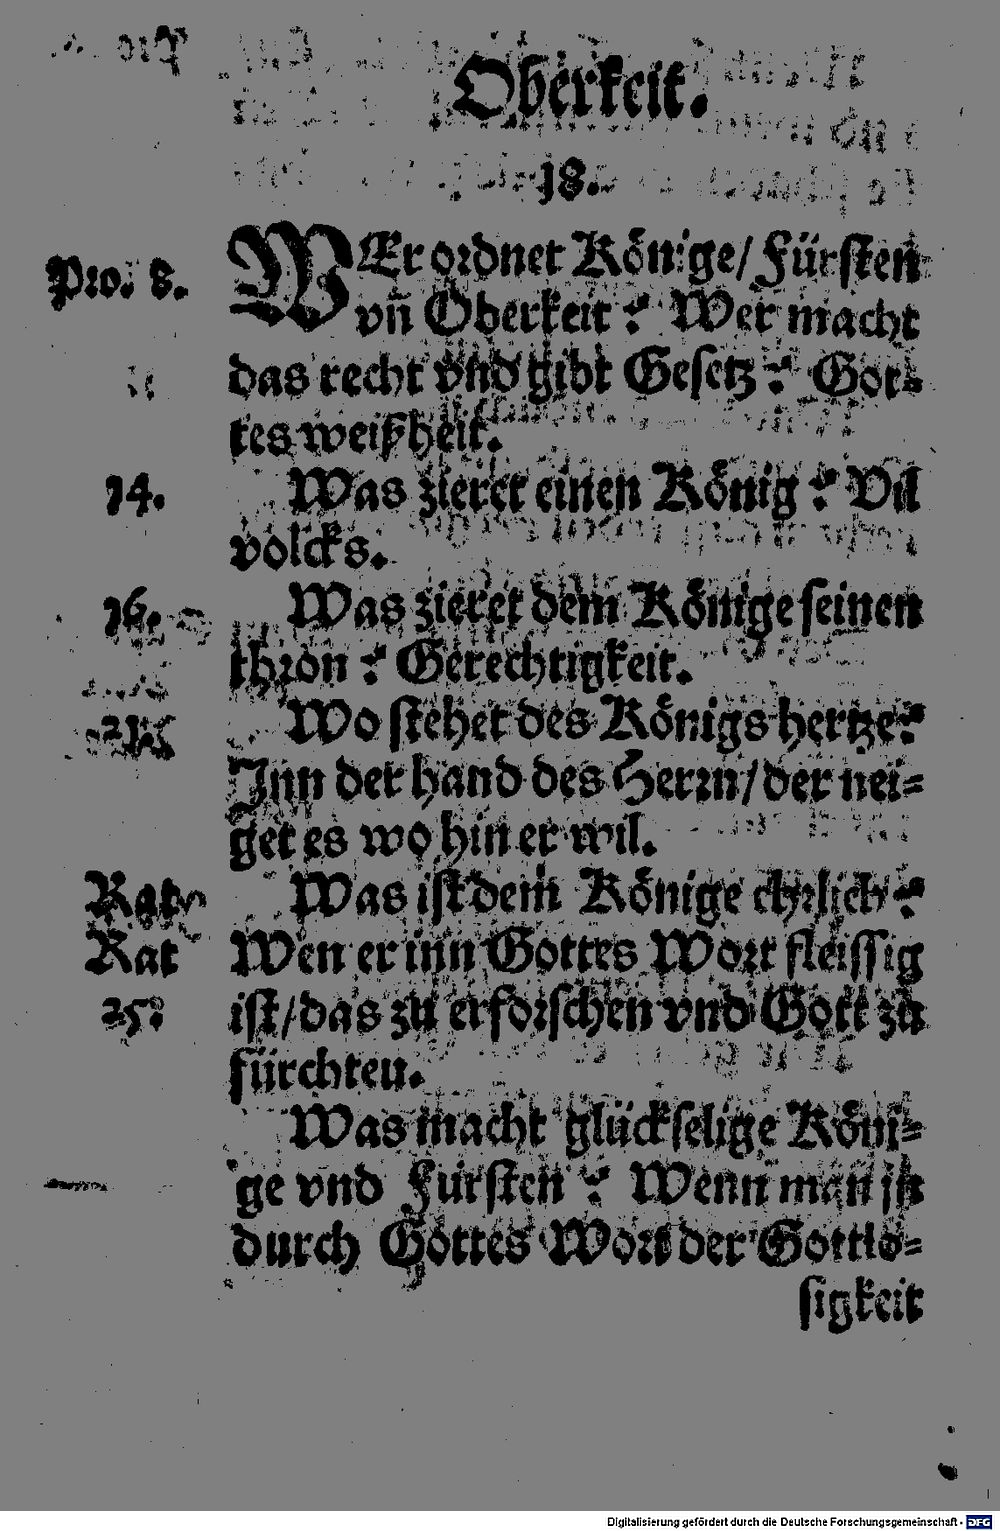 Oberkeit.
18.
Pro. 8.
WEr ordnet Könige/ Fürsten
vñ Oberkeit? Wer macht
das recht vnd gibt Gesetz? Got-
tes weißheit.
14.
Was zieret einen König? Vil
volcks.
16.
Was zieret dem Könige seinen
thron? Gerechtigkeit.
21.
Wo stehet des Königs hertze?
Inn der hand des Herrn/ der nei-
get es wo hin er wil.
Rat
Was ist dem Könige ehrlich?
Rat
Wen er inn Gottes Wort fleissig
25.
ist/ das zu erforschen vnd Gott zu
fürchten.
Was macht glückselige Köni-
ge vnd Fürsten? Wenn man jn
durch Gottes Wort der Gottlo-
sigkeit
Digitalisierung gefördert durch die Deutsche Forschungsgemeinschaft - DFG